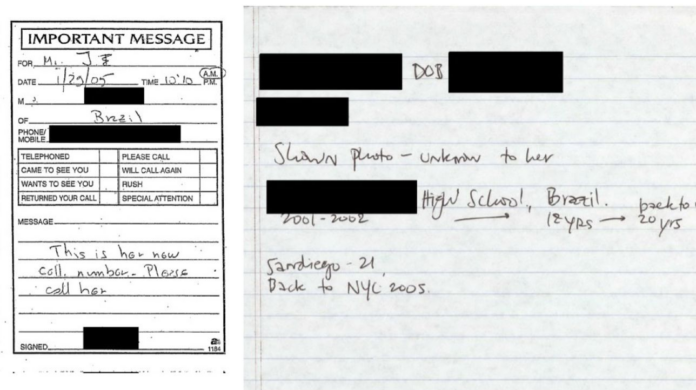 IMPORTANT MESSAGE
FOR Mr. J E
DATE 1/29/05 TIME 10:10 A.M. P.M.
M
OF Brazil
PHONE/
MOBILE
TELEPHONED PLEASE CALL
CAME TO SEE YOU WILL CALL AGAIN
WANTS TO SEE YOU RUSH
RETURNED YOUR CALL SPECIAL ATTENTION
MESSAGE
This is her new
cell. number. Please
call her
SIGNED 1184
DOB
Shown photo - unknown to her
High School, Brazil. back to
2001-2002 → 12 yrs → 20 yrs
Sandiego - 21
Back to NYC 2005.